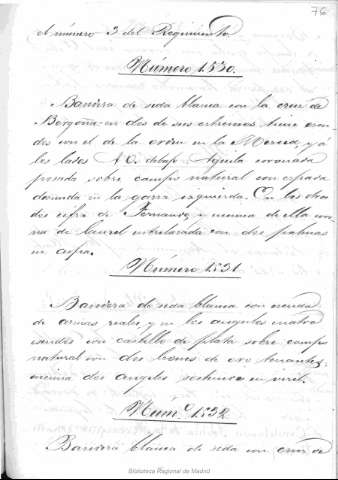 76
el número 3 del Regimiento
Número 1530.
Bandera de seda blanca con la cruz de
Borgoña: en dos de sus extremos tiene escu-
dos con el de la orden de la Merced, y á
los lados N C. debajo Aguila coronada
posada sobre campo natural con espada
desnuda en la garra izquierda. En los otros
dos cifra de Fernando, y encima de ella coro-
na de laurel entrelazada con dos palmas
en aspa.
Número 1531.
Bandera de seda blanca con escudo
de armas reales, y en los angulos cuatro
escudos con castillo de plata sobre campo
natural con dos leones de oro
encima dos angeles sostienen un viril.
Num.º 1532
Bandera blanca de seda con cruz de
Biblioteca Regional de Madrid